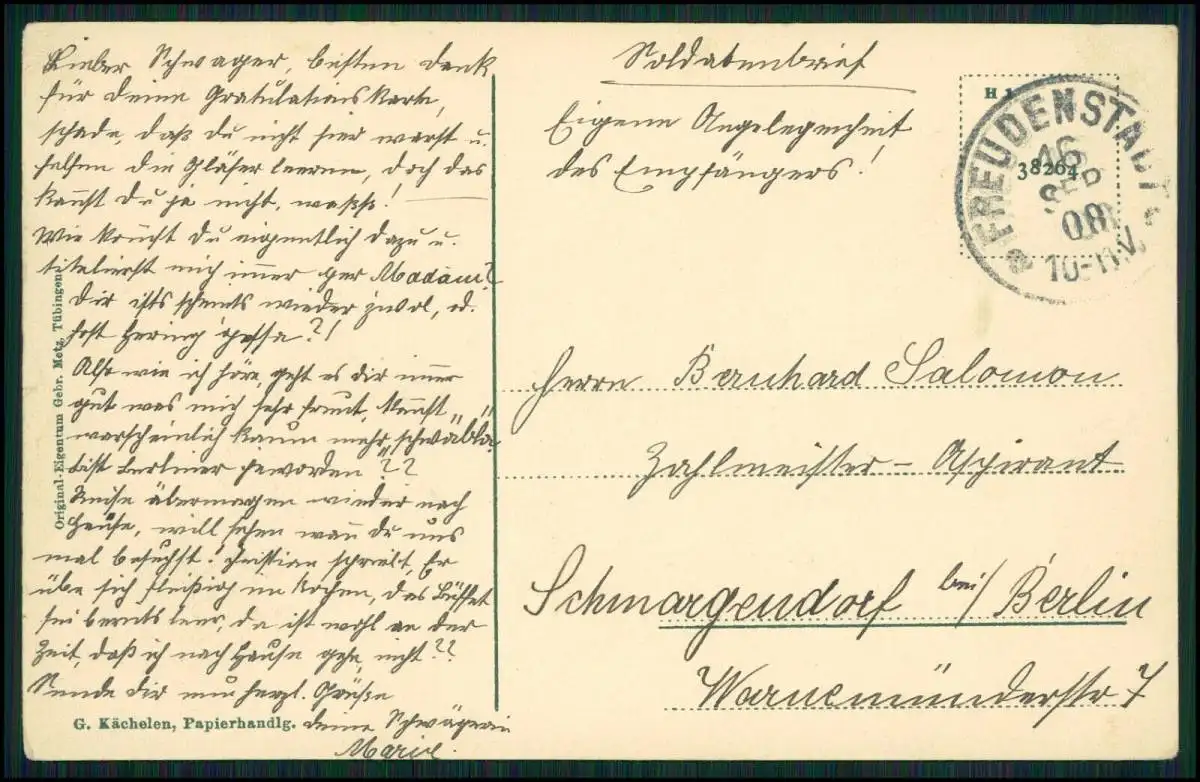 Lieber Schwager, besten Dank
für Deine Gratulationskarte,
schade, daß du nicht hier warst u.
helfen die Gläser leeren, doch das
kannst Du ja nicht, waßß!
Wie kommst Du eigentlich dazu u.
titelierst mich immer per Madam?
Dir ists scheints wieder zu wol, od.
hast Hering gessa?!
Also wie ich höre, geht es dir immer
gut was mich sehr freut, kannst
warscheinlich kaum mehr „schwäbla"
bist Berliner geworden??
Reise übermorgen wieder nach
Hause, will sehen wann du uns
mal besuchst! Christian schreibt, Er
übe sich fleißig im Kochen, das Büffet
sei bereits leer, da ist wohl an der
Zeit, daß ich nach Hause gehe, nicht??
Sende dir nun herzl. Grüße
deine Schwägerin
Marie.
G. Kächelen, Papierhandlg.
Original-Eigentum Gebr. Metz, Tübingen
Soldatenbrief
Eigene Angelegenheit
des Empfängers!
38264
FREUDENSTADT
16
SEP
08
10-11V.
Herrn Bernhard Salomon
Zahlmeister-Aspirant
Schmargendorf bei/Berlin
Warnemünderstr 7